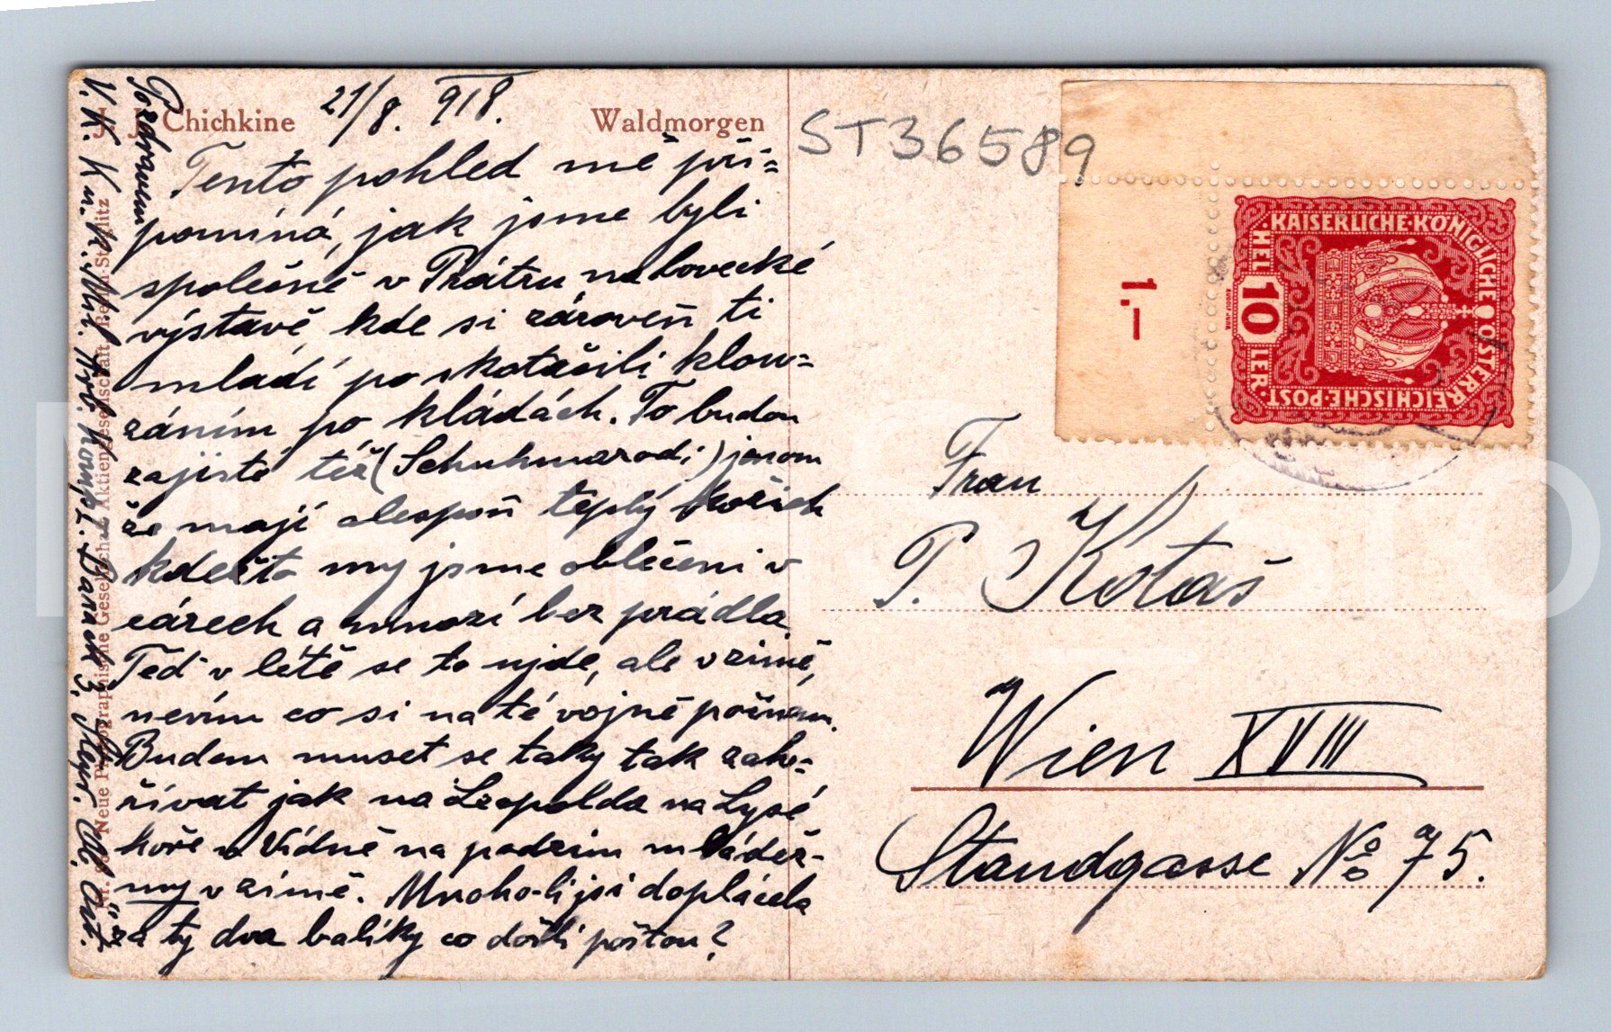 Chichkine
21/8. 918.
Waldmorgen
ST36589
Tento pohled mě při=
pomíná, jak jsme byli
společně v Prátru na lovecké
výstavě, kde si zároveň ti
mladí poskotačili klou=
záním po kládách. To budou
zajisté též (Schuhmarodi) jenom
že mají alespoň teplý kožich
kdežto my jsme oblečeni v
cárech a mnozí bez prádla.
Teď v létě se to ujde, ale v zimě,
nevím co si na té vojně počnem.
Budem muset se taky tak zahr=
řívat jak na Leopolda na Lysé
hoře u Vídně na podzim
my v zimě. Mnoho-li jsi doplácela
za ty dva balíky co došli poštou?
Pozdravem
V. K. K.u.K. Mil. Arb. Komp. Barack 3,
Neue Photographische Gesellschaft Aktiengesellschaft Berlin-Steglitz
KAISERLICHE·KÖNIGLICHE ÖSTERREICHISCHE·POST
10
HELLER
1,—
Frau
P. Kotaš
Wien XVIII
Standgasse No 75.